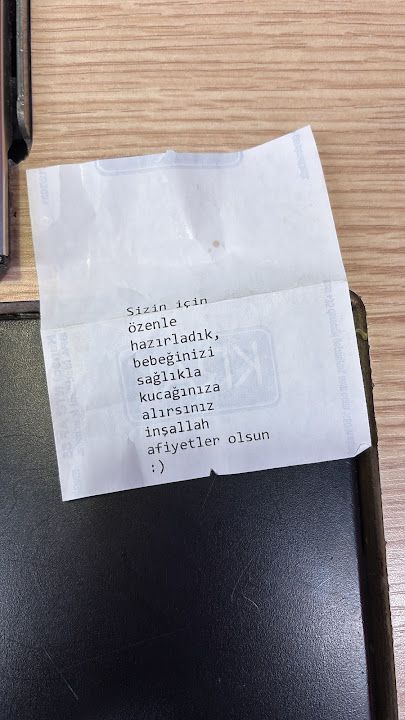 Sizin için
özenle
hazırladık,
bebeğinizi
sağlıkla
kucağınıza
alırsınız
inşallah
afiyetler olsun
:)